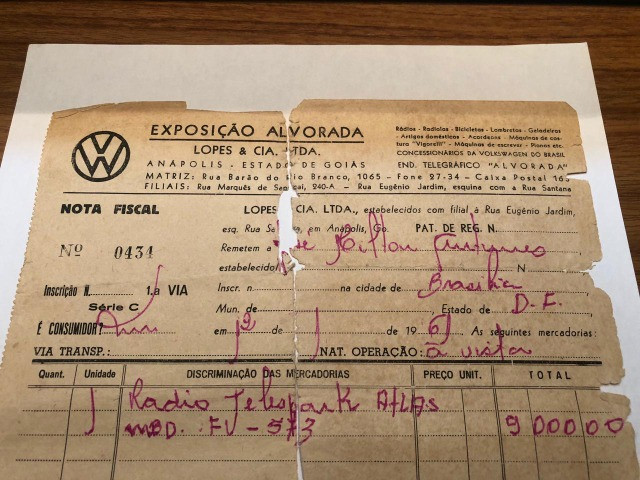 EXPOSIÇÃO ALVORADA
LOPES & CIA. LTDA.
ANÁPOLIS - ESTADO DE GOIÁS
MATRIZ: Rua Barão do Rio Branco, 1065 - Fone 27-34 - Caixa Postal 165
FILIAIS: Rua Marquês de Sapucaí, 240-A - Rua Eugênio Jardim, esquina com a Rua Santana
Rádios - Radiolas - Bicicletas - Lambretas - Geladeiras
- Artigos domésticos - Acordeons - Máquinas de cos-
tura "Vigorelli" - Máquinas de escrever - Pianos etc.
CONCESSIONÁRIOS DA VOLKSWAGEN DO BRASIL
END. TELEGRÁFICO "ALVORADA"
NOTA FISCAL
Nº 0434
Inscrição N. 1.a VIA
Série C
É CONSUMIDOR? Sim
VIA TRANSP.:
LOPES CIA. LTDA., estabelecidos com filial à Rua Eugênio Jardim,
esq. Rua Sa a, em Anápolis, Go. PAT. DE REG. N.
Remetem a José Antunes
estabelecido N
Inscr. n. na cidade de Brasilia
Mun. de Estado de D.F.
em 12 de de 1961 As seguintes mercadorias:
NAT. OPERAÇÃO: à vista
Quant. Unidade DISCRIMINAÇÃO DAS MERCADORIAS PREÇO UNIT. TOTAL
1 Radio Telespark Atlas
MOD. FV-573 900000